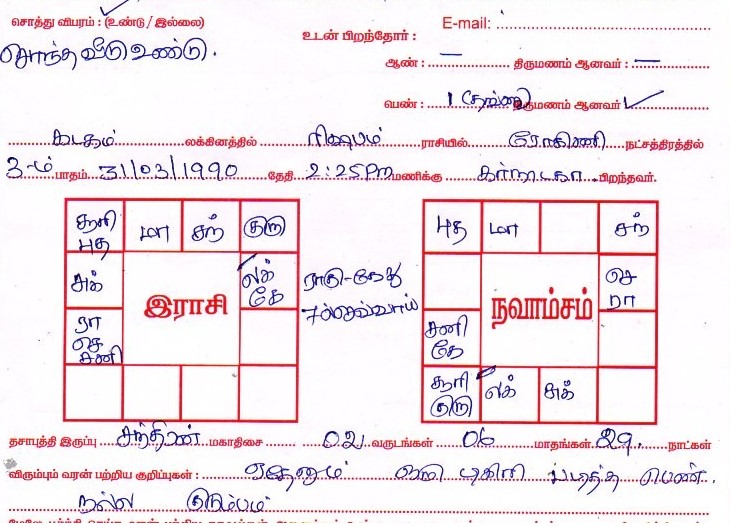 சொத்து விபரம் : (உண்டு / இல்லை)
சொந்த வீடு உண்டு.
உடன் பிறந்தோர் :
E-mail:
ஆண் : — திருமணம் ஆனவர் : —
பெண் : 1 திருமணம் ஆனவர்
கடகம் லக்கினத்தில் ரிஷபம் ராசியில் ரோகிணி நட்சத்திரத்தில்
3-ம் பாதம் 31/03/1990 தேதி 2:25Pm மணிக்கு கர்நாடகா பிறந்தவர்.
சூரி புத
மா
சந்
குரு
சுக்
லக் கே
ரா செ சனி
இராசி
ராகு-கேது
7ல் செவ்வாய்
புத
மா
சந்
செ ரா
சனி கே
சூரி குரு
லக்
சுக்
நவாம்சம்
தசாபுத்தி இருப்பு சந்திரன் மகாதிசை 02 வருடங்கள் 06 மாதங்கள் 29 நாட்கள்
விரும்பும் வரன் பற்றிய குறிப்புகள் : ஏதேனும் டிகிரி படித்த பெண்.
நல்ல குடும்பம்